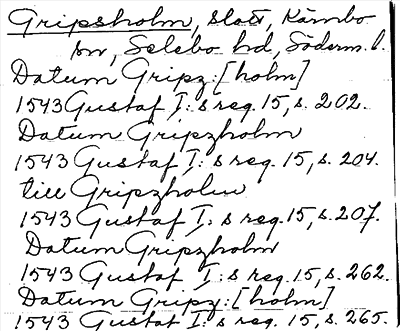 Gripsholm, slott, Kärnbo
sn, Selebo hd, Söderm. l.
Datum Gripz:[holm]
1543 Gustaf I: s reg. 15, s. 202.
Datum Gripzholm
1543 Gustaf I: s reg. 15, s. 204.
till Gripzholm
1543 Gustaf I: s reg. 15, s. 207.
Datum Gripzholm
1543 Gustaf I: s reg. 15, s. 262.
Datum Gripz:[holm]
1543 Gustaf I: s reg. 15, s. 265.